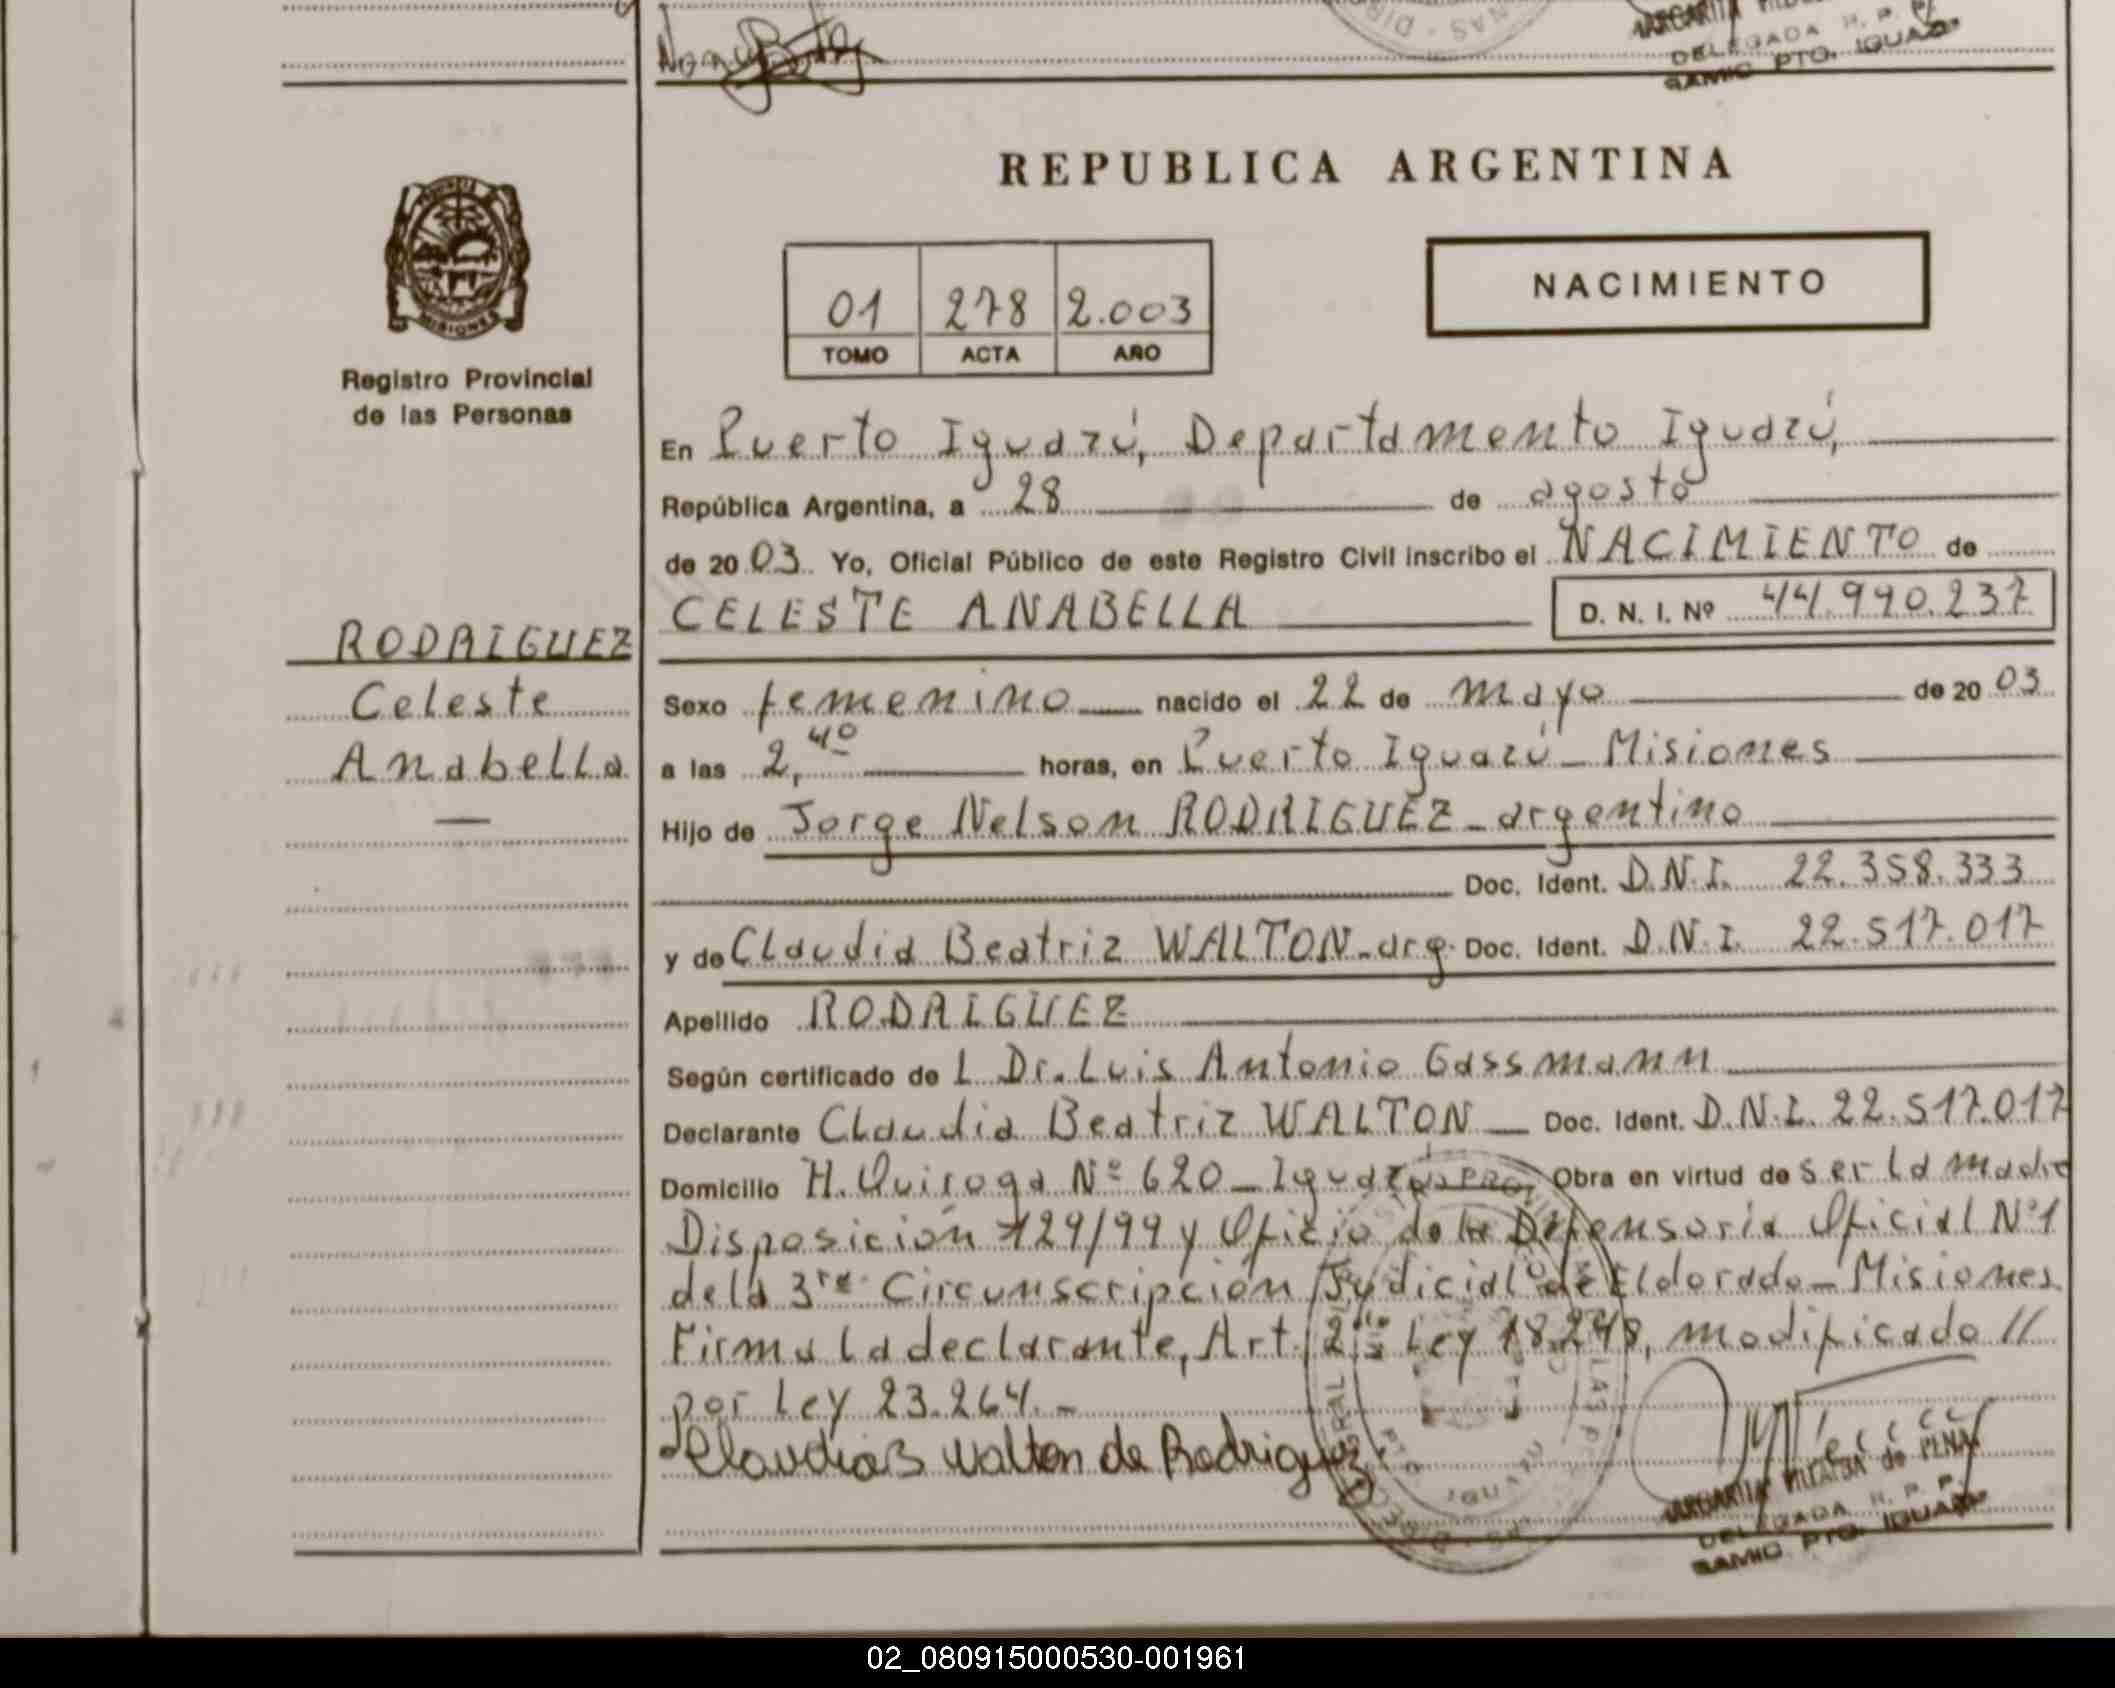 DELEGADA R. P. P.
SAMIC PTO. IGUAZU
REPUBLICA ARGENTINA
MISIONES
Registro Provincial
de las Personas
01 278 2.003
TOMO ACTA AÑO
NACIMIENTO
En Puerto Iguazú, Departamento Iguazú,
República Argentina, a 28 de agosto
de 2003. Yo, Oficial Público de este Registro Civil inscribo el NACIMIENTO de
CELESTE ANABELLA D. N. I. Nº 44.990.237
RODRIGUEZ
Celeste
Anabella
Sexo femenino nacido el 22 de mayo de 2003
a las 2,40 horas, en Puerto Iguazú - Misiones
Hijo de Jorge Nelson RODRIGUEZ - argentino
Doc. Ident. D.N.I. 22.358.333
y de Claudia Beatriz WALTON - arg. Doc. Ident. D.N.I. 22.517.017
Apellido RODRIGUEZ
Según certificado de L Dr. Luis Antonio Gassmann
Declarante Claudia Beatriz WALTON Doc. Ident. D.N.I. 22.517.017
Domicilio H. Quiroga Nº 620 - Iguazú Obra en virtud de ser la madre
Disposición 129/99 y Oficio de la Defensoría Oficial Nº1
de la 3ra Circunscripción Judicial de Eldorado - Misiones
Firma la declarante, Art. 2do Ley 18.248, modificado //
por Ley 23.264. -
Claudia B Walton de Rodriguez
MARGARITA VILLALBA de PEÑA
DELEGADA R. P. P.
SAMIC PTO. IGUAZU
02_080915000530-001961